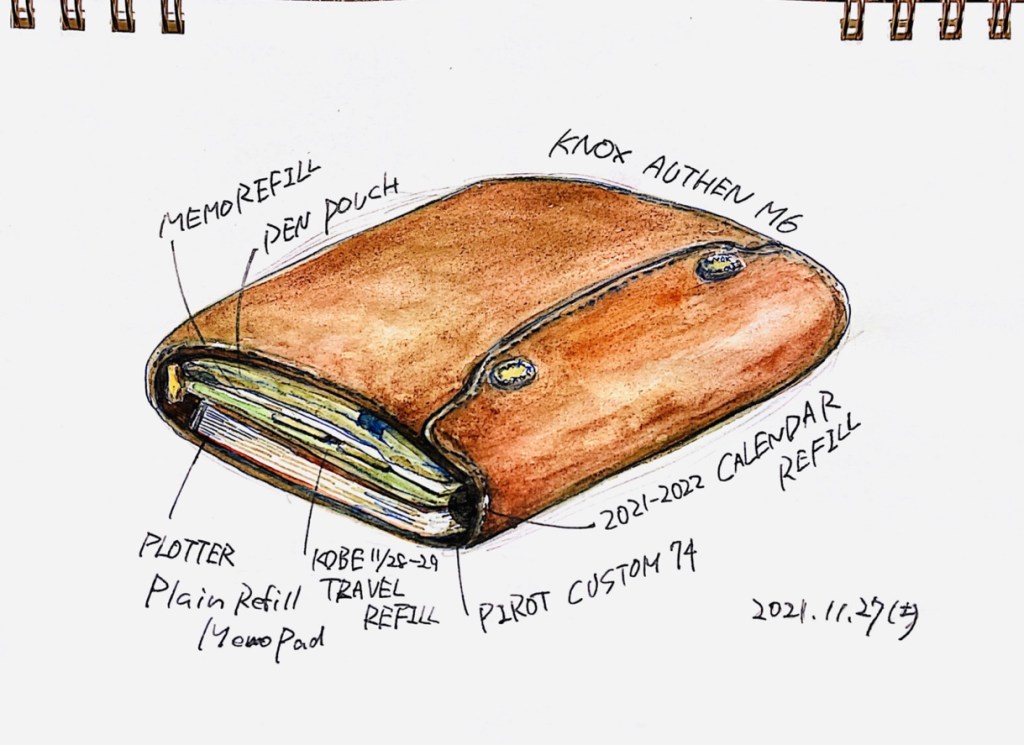 KNOX AUTHEN M6
MEMO REFILL
PEN POUCH
2021-2022 CALENDAR
REFILL
PLOTTER
Plain Refill
Memo Pad
KOBE 11/28-29
TRAVEL
REFILL
PIROT CUSTOM 74
2021.11.27(土)